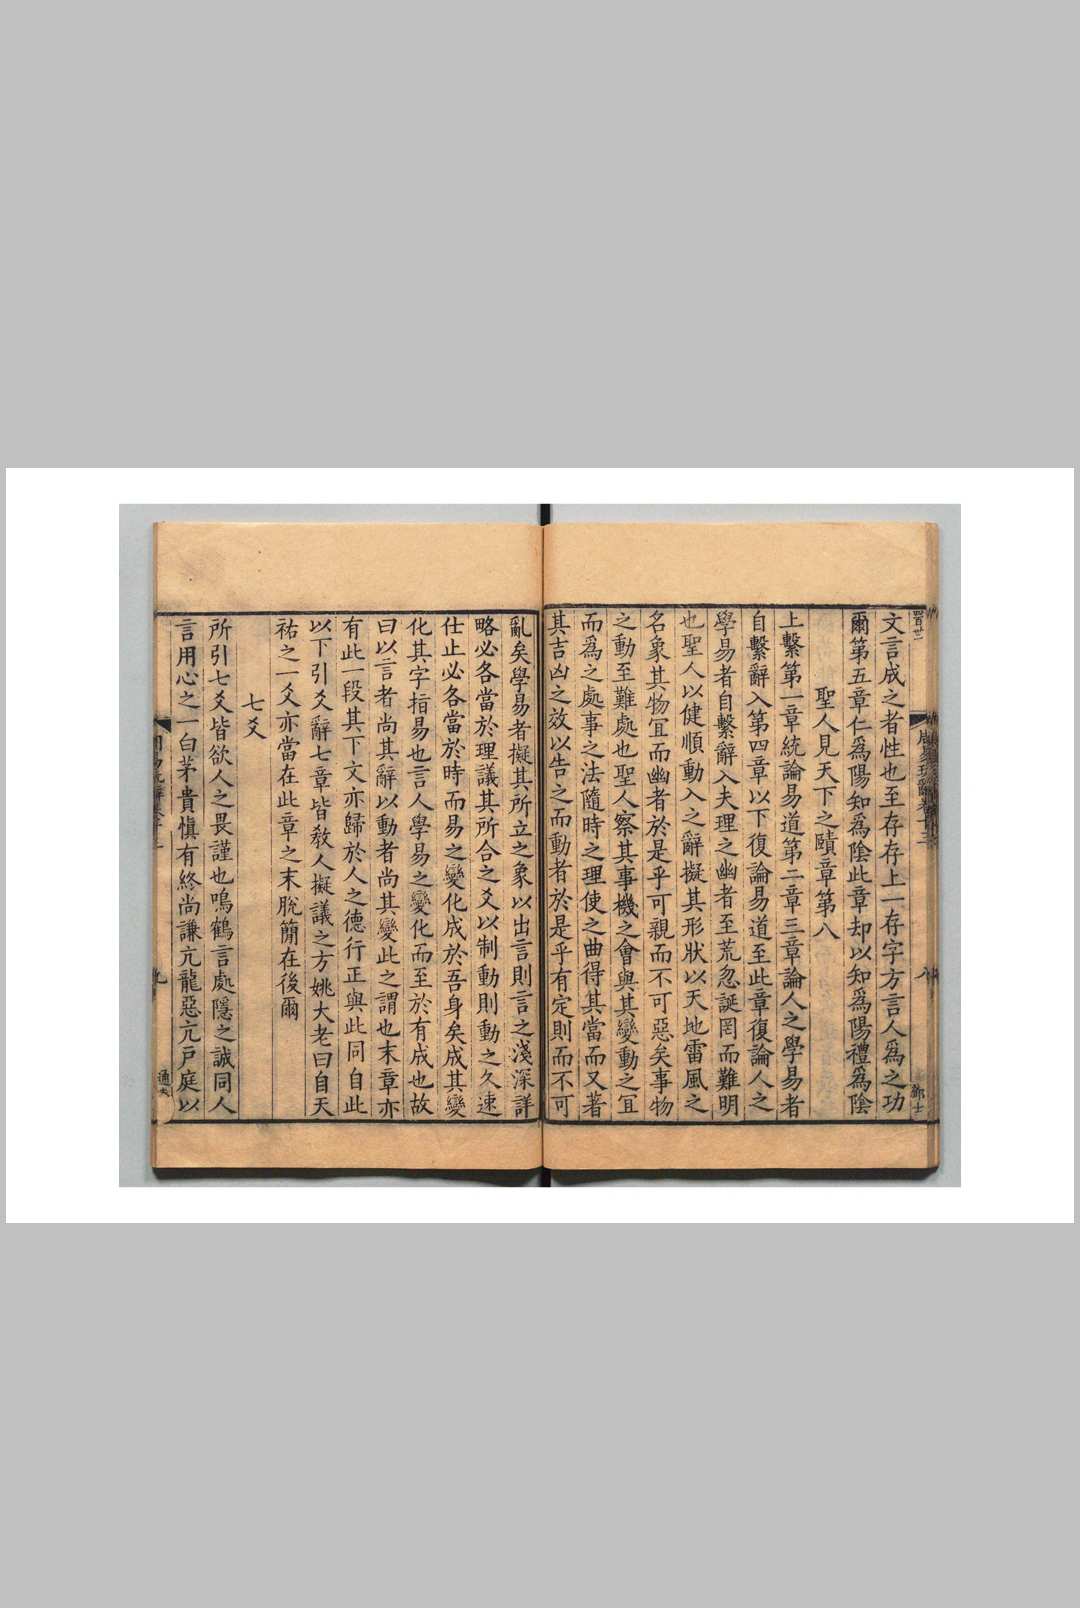 文言成之者性也至存存上一存字方言人爲之功
爾第五章仁爲陽知爲陰此章却以知爲陽禮爲陰
聖人見天下之賾章第八
上繫第一章統論易道第二章三章論人之學易者
自繫辭入第四章以下復論易道至此章復論人之
學易者自繫辭入夫理之幽者至荒忽誕罔而難明
也聖人以健順動入之辭擬其形狀以天地雷風之
名象其物冝而幽者於是乎可親而不可惡矣事物
之動至難處也聖人察其事機之會與其變動之冝
而爲之處事之法隨時之理使之曲得其當而又著
其吉凶之效以告之而動者於是乎有定則而不可
亂矣學易者擬其所立之象以出言則言之淺深詳
略必各當於理議其所合之爻以制動則動之久速
仕止必各當於時而易之變化成於吾身矣成其變
化其字指易也言人學易之變化而至於有成也故
曰以言者尚其辭以動者尚其變此之謂也末章亦
有此一段其下文亦歸於人之德行正與此同自此
以下引爻辭七章皆敎人擬議之方姚大老曰自天
祐之一爻亦當在此章之末脫簡在後爾
七爻
所引七爻皆欲人之畏謹也鳴鶴言處隱之誠同人
言用心之一白茅貴愼有終尚謙亢龍惡亢戸庭以
九